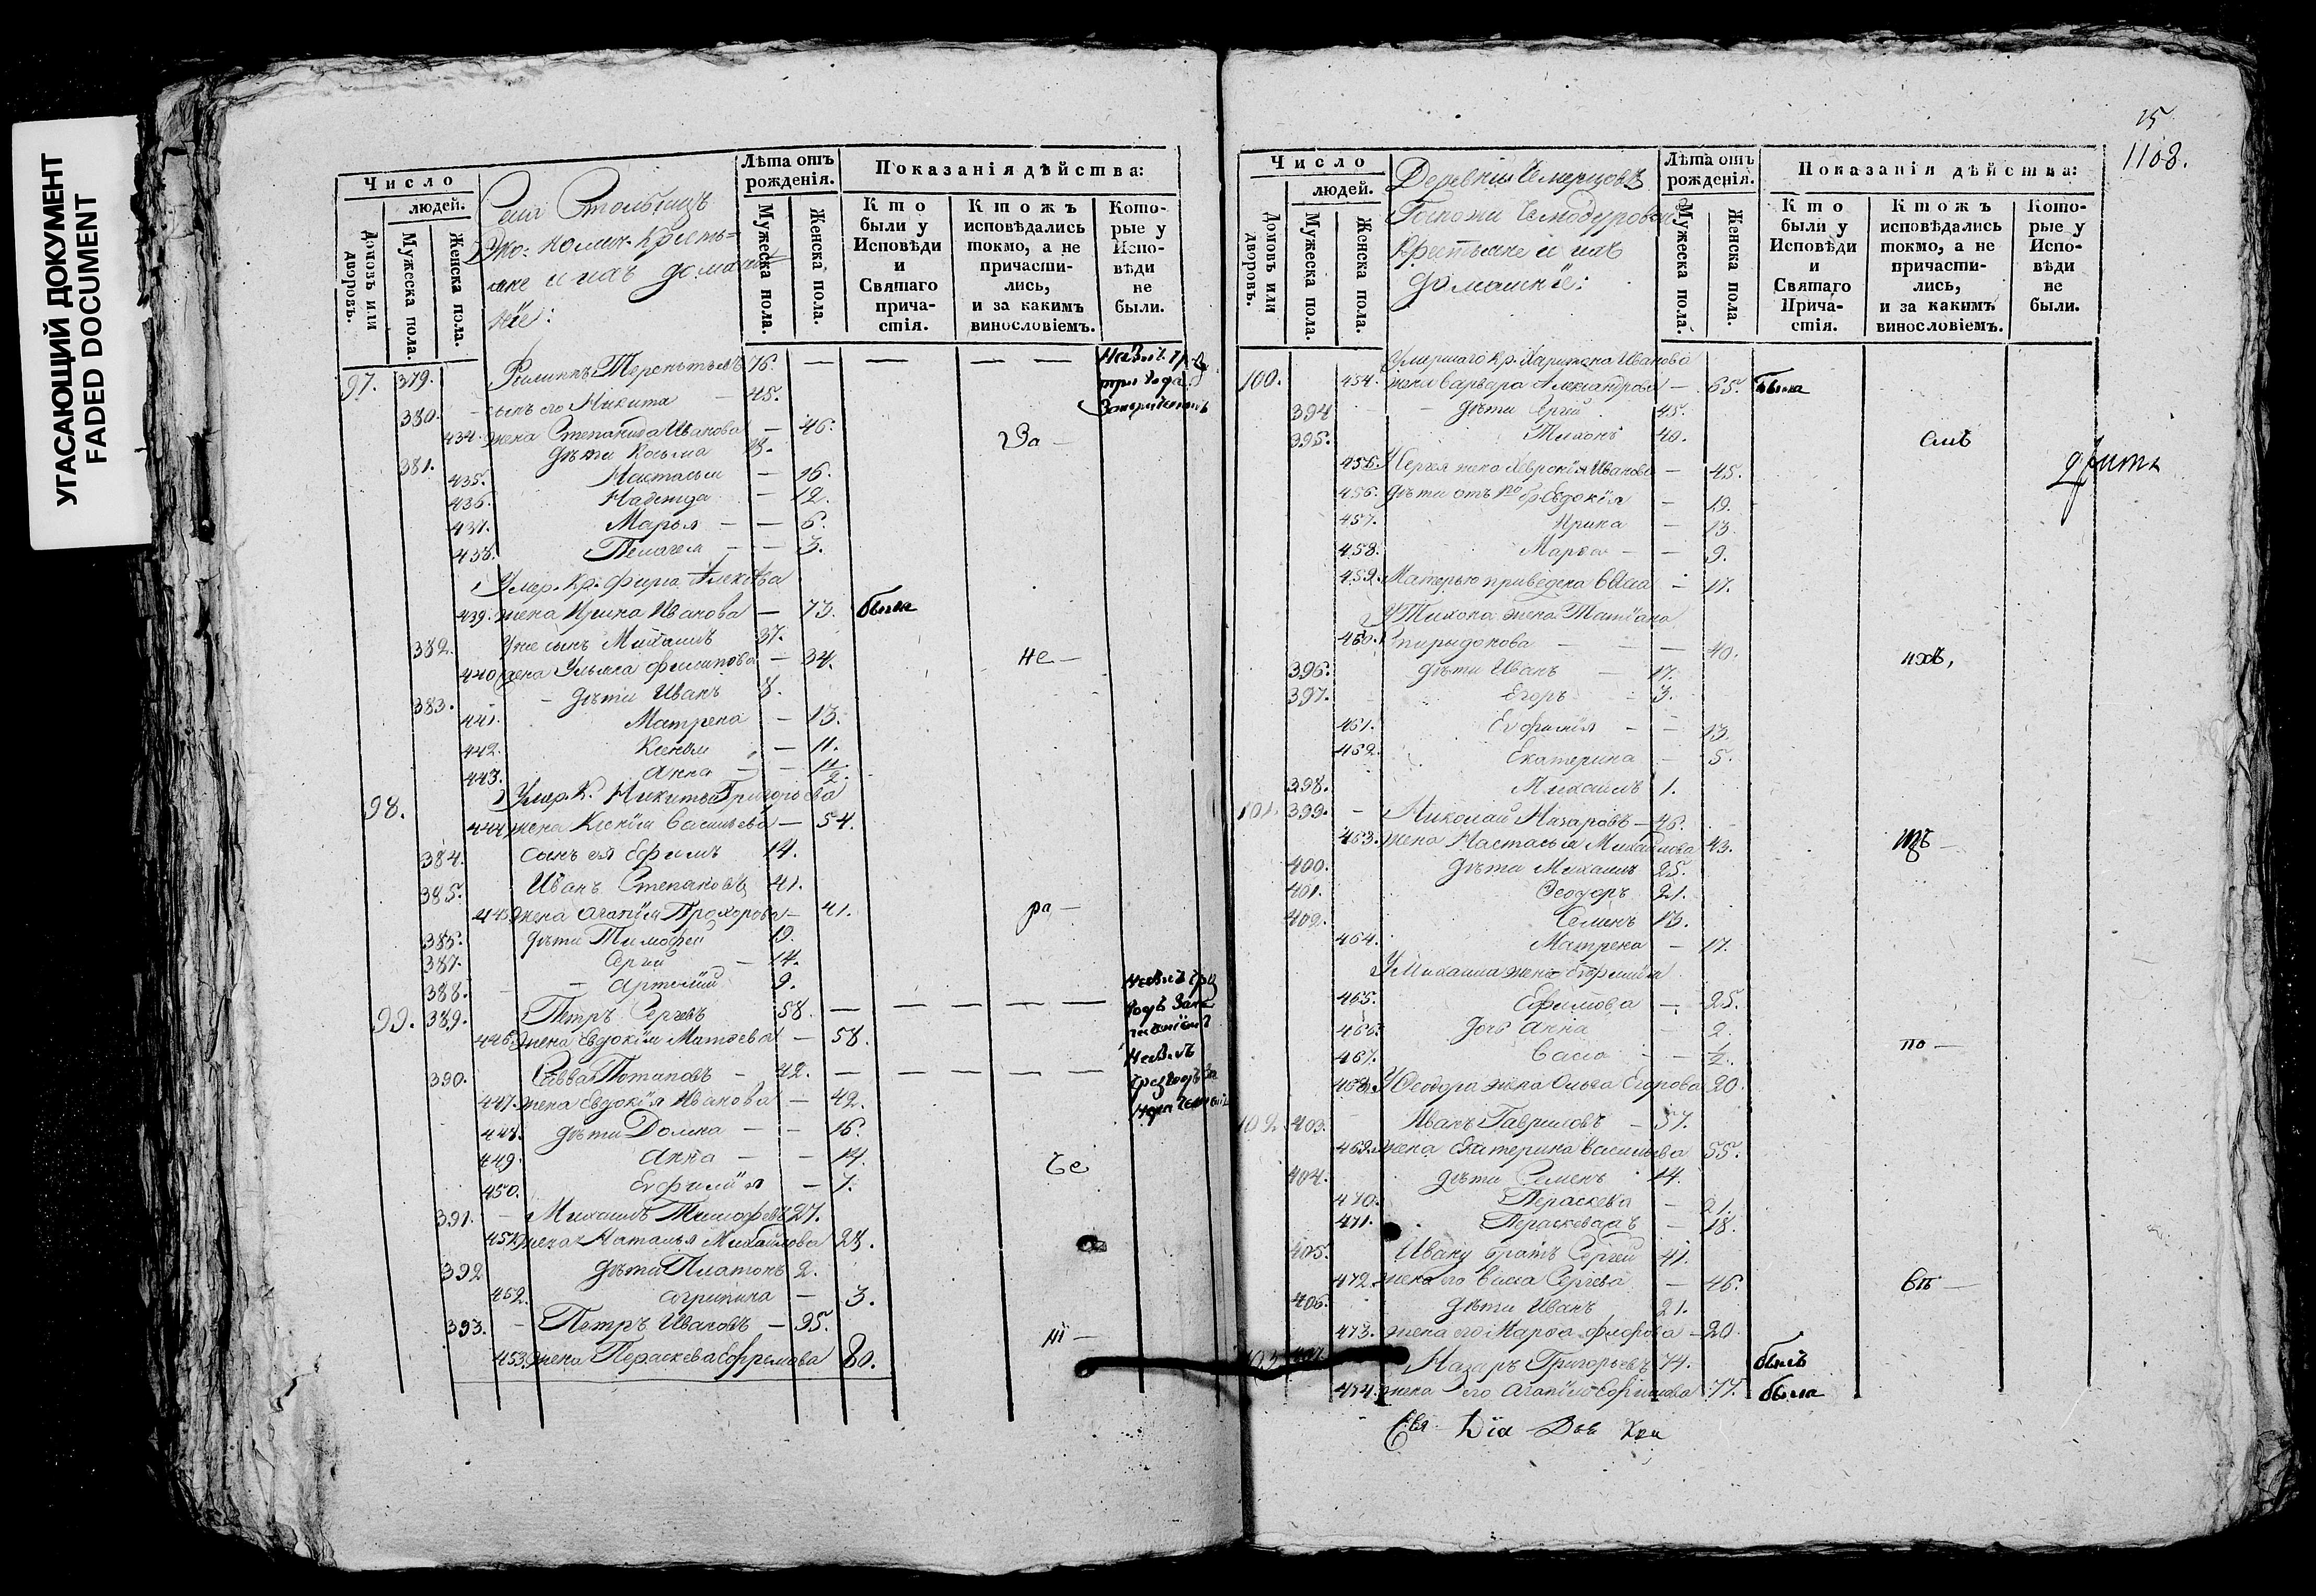 УГАСАЮЩИЙ ДОКУМЕНТ
FADED DOCUMENT
Число
людей.
Домовъ или дворовъ.
Мужеска пола.
Женска пола.
Села Столбищъ
Эко: номич. кресть=
яне и ихъ домаш
ніе:
Лѣта отъ рожденія.
Мужеска пола.
Женска пола.
Показанія дѣйства:
Кто были у Исповѣди и Святаго причастія.
Ктожъ исповѣдались токмо, а не причастились, и за какимъ винословіемъ.
Которые у Исповѣди не были.
97. 379. Филиппъ Терентьевъ 76. — — — —
380. сынъ его Никита — 45.
434. жена Степанида Иванова — 46. За —
381. дѣти Косьма 18.
435. Настасья — 16.
436. Надежда — 12.
437. Марья — — 6.
438. Пелагея — — 3.
Умер. кр. Фирса Алексѣева
439. жена Ирина Иванова — 73. была
382. Уже сынъ Михаилъ 37.
440 жена Ульяна Филипова — 34. не —
383. — дѣти Иванъ 8.
441. Матрена — 13.
442. Ксенья — 11.
443. Анна — —
98. Умер. К. Никиты Григорьева
444 жена Ксенія Васильева — 54.
384. Сынъ ея Ефимъ 14.
385. Иванъ Степановъ 41.
445 жена Агапія Прохорова — 41. ра —
386. дѣти Тимофей 19.
387. Сергій — 14.
388. — — Артемій 9.
99. 389. Петръ Сергѣевъ 58. — — — — —
446. жена Евдокія Матвеева — 58.
390. Савва Потаповъ — 42. — — — — —
447. жена Евдокія Иванова — 42.
448. дѣти Домна — — 16.
449. Анна — — 14.
450. Евфимія — 7. Че
391. — Михаилъ Тимофеевъ 27.
451 жена Наталья Михайлова 28.
392 дѣти Платонъ 2.
452. Агрипина — 3.
393. — Петръ Ивановъ — 95.
453. жена Параскева Ефремова 80.
15
1108.
Число
людей.
Домовъ или дворовъ.
Мужеска пола.
Женска пола.
Деревни Чемерцовъ
Госпожи Чемодуровой
Крестьяне и ихъ
домашніе:
Лѣта отъ рожденія.
Мужеска пола.
Женска пола.
Показанія дѣйства:
Кто были у Исповѣди и Святаго Причастія.
Ктожъ исповѣдались токмо, а не причастились, и за какимъ винословіемъ.
Которые у Исповѣди не были.
Умершаго кр. Харитона Иванова
100. 454. жена Варвара Александрова — 65. была
394 — дѣти Сергій 45.
395. Тихонъ 40.
455. У Сергея жена Хавронія Иванова — 45.
456. дѣти отъ Евдокія — 19.
457. Ирина — 13.
458. Марѳа — — 9.
459. Матерью приведена Васа — 17.
У Тихона жена Татіана
460. Спиридонова — — — 40.
396. дѣти Иванъ — 17.
397. Егоръ 3.
461. Евфимія — — 13.
462. Екатерина — 5.
398. Михаилъ 1.
101. 399. — Николай Назаровъ — 46.
463. жена Настасья Михайлова 43.
400. дѣти Михаилъ 25.
401. Ѳеодоръ 21.
402. Семенъ 13.
464. Матрена — 17.
У Михаила жена Евфимія
465. Ефимова — 25.
466. дочь Анна — 2.
467. Васа — — ½. по —
468. У Ѳеодора жена Ольга Егорова 20.
102. 403. Иванъ Гавриловъ — 57.
469. жена Екатерина Васильева 55.
404. дѣти Семенъ 14.
470. Параскева — 21.
471. Параскева — 18.
405. Ивану братъ Сергей 41.
472. жена его Васса Сергѣева — 46.
406. дѣти Иванъ 21.
473. жена его Марѳа Флорова — 20.
103 407. Назаръ Григорьевъ 74. былъ
474. жена его Агапія Ефимова 77. была